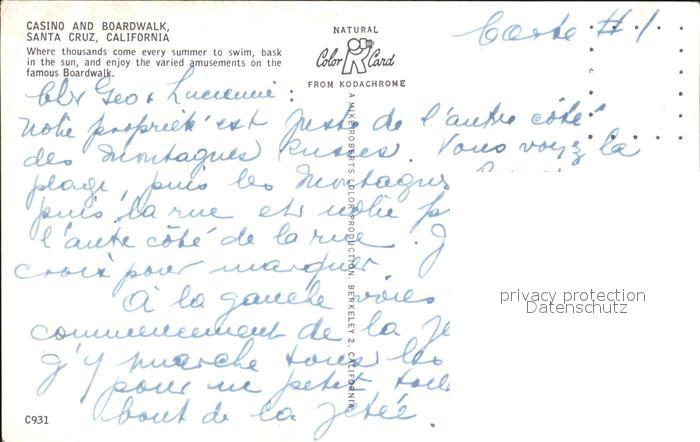 CASINO AND BOARDWALK,
SANTA CRUZ, CALIFORNIA
Where thousands come every summer to swim, bask
in the sun, and enjoy the varied amusements on the
famous Boardwalk.
NATURAL
Color Card
FROM KODACHROME
Carte #1
Geo & Lucienne :
Notre propriété est juste de l'autre côté
des Montagnes Russes. Vous voyez la
plage, puis les Montagnes
puis la rue et notre p
l'autre côté de la rue. J
croix pour marquer
À la gauche voies
commencement de la Je
J'y marche tous les
pour un petit
bout de la jetée.
A MIKE ROBERTS COLOR PRODUCTION, BERKELEY 2, CALIFORNIA
privacy protection
Datenschutz
C931